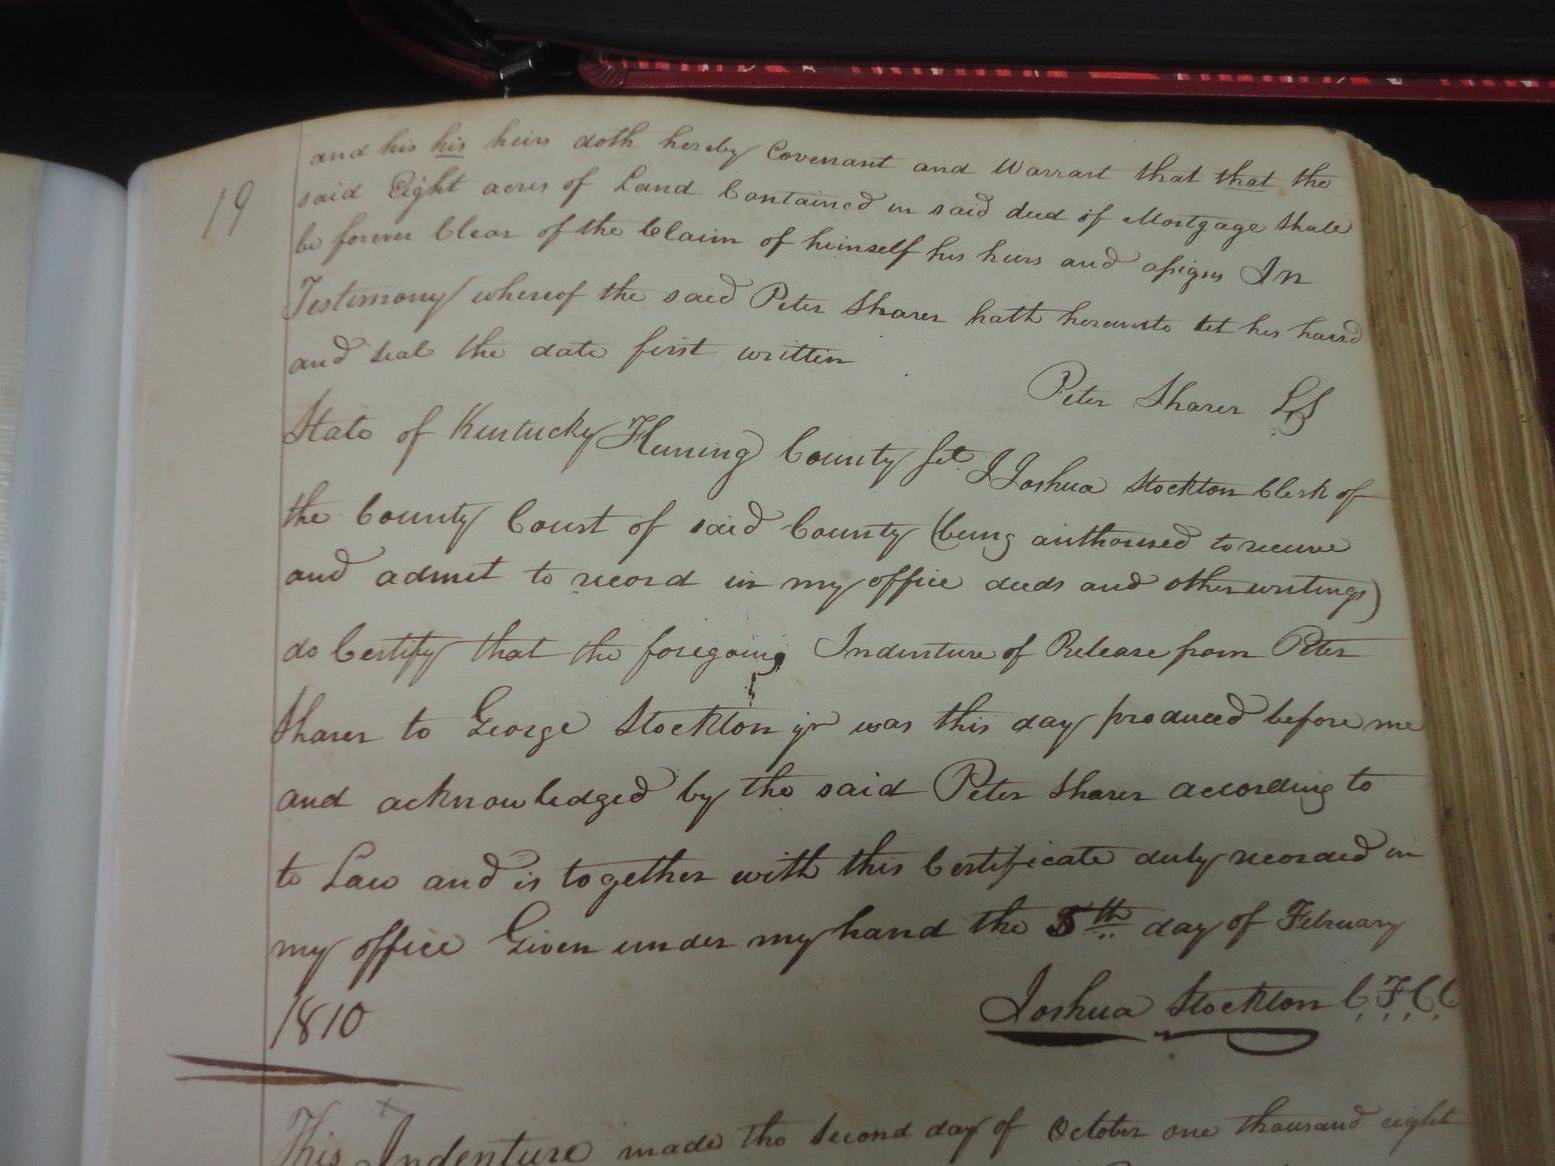 19
and his his heirs doth hereby Covenant and Warrart that that the
said Eight acres of Land Contained in said deed of Mortgage Shall
be forever Clear of the Claim of himself his heirs and assigns In
Testimony whereof the said Peter Sharer hath hereunto set his hand
and seal the date first written
Peter Sharer LS
State of Kentucky Fleming County Sct I Joshua Stockton Clerk of
the County Court of said County (being authorised to receive
and admit to record in my office deeds and other writings)
do Certify that the foregoing Indenture of Release from Peter
Sharer to George Stockton jr was this day produced before me
and acknowledged by the said Peter Sharer according to
to Law and is together with this Certificate duly recorded in
my office Given under my hand the 5th day of February
1810
Joshua Stockton C.F.C.C
This Indenture made the Second day of October one thousand eight